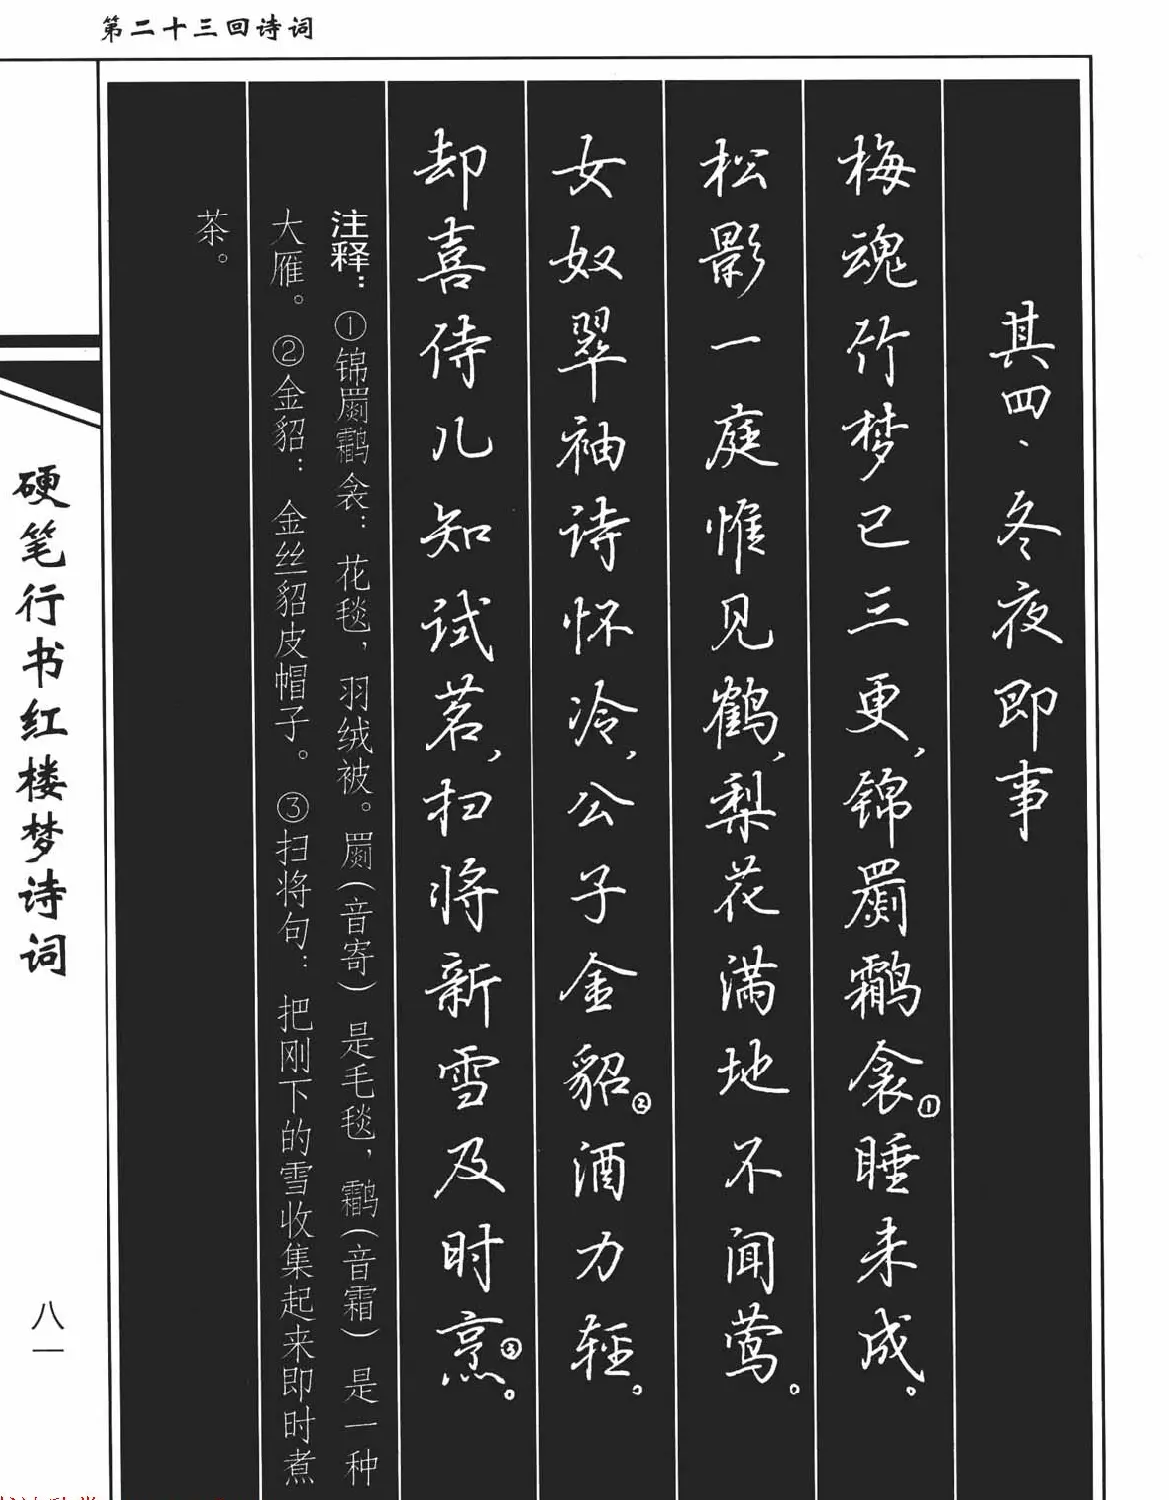 第二十三回诗词
其四、冬夜即事
梅魂竹梦已三更，锦罽鹴衾①睡未成。
松影一庭惟见鹤，梨花满地不闻莺。
女奴翠袖诗怀冷，公子金貂②酒力轻。
却喜侍儿知试茗，扫将新雪及时烹③。
注释：①锦罽鹴衾：花毯，羽绒被。罽（音寄）是毛毯，鹴（音霜）是一种
大雁。②金貂：金丝貂皮帽子。③扫将句：把刚下的雪收集起来即时煮
茶。
硬笔行书红楼梦诗词
八一